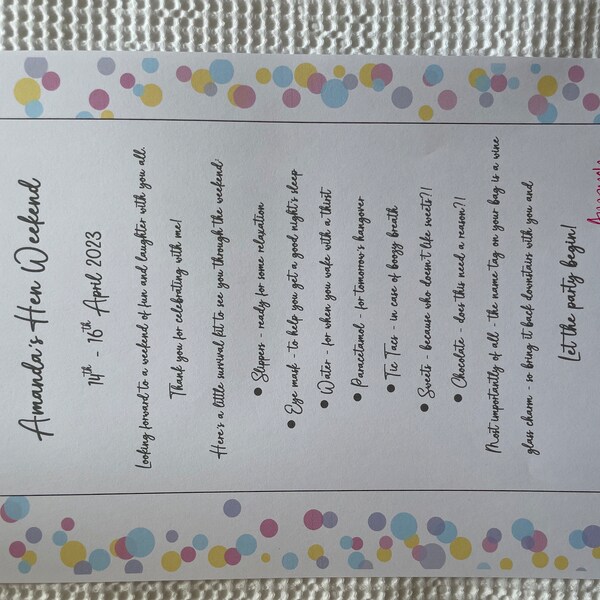 Amanda's Hen Weekend
14th - 16th April 2023
Looking forward to a weekend of fun and laughter with you all.
Thank you for celebrating with me!
Here's a little survival kit to see you through the weekend:
• Slippers - ready for some relaxation
• Eye mask - to help you get a good night's sleep
• Water - for when you wake with a thirst
• Paracetamol - for tomorrow's hangover
• Tic Tacs - in case of boozy breath
• Sweets - because who doesn't like sweets?!
• Chocolate - does this need a reason?!
Most importantly of all - the name tag on your bag is a wine
glass charm - so bring it back downstairs with you and
Let the party begin!